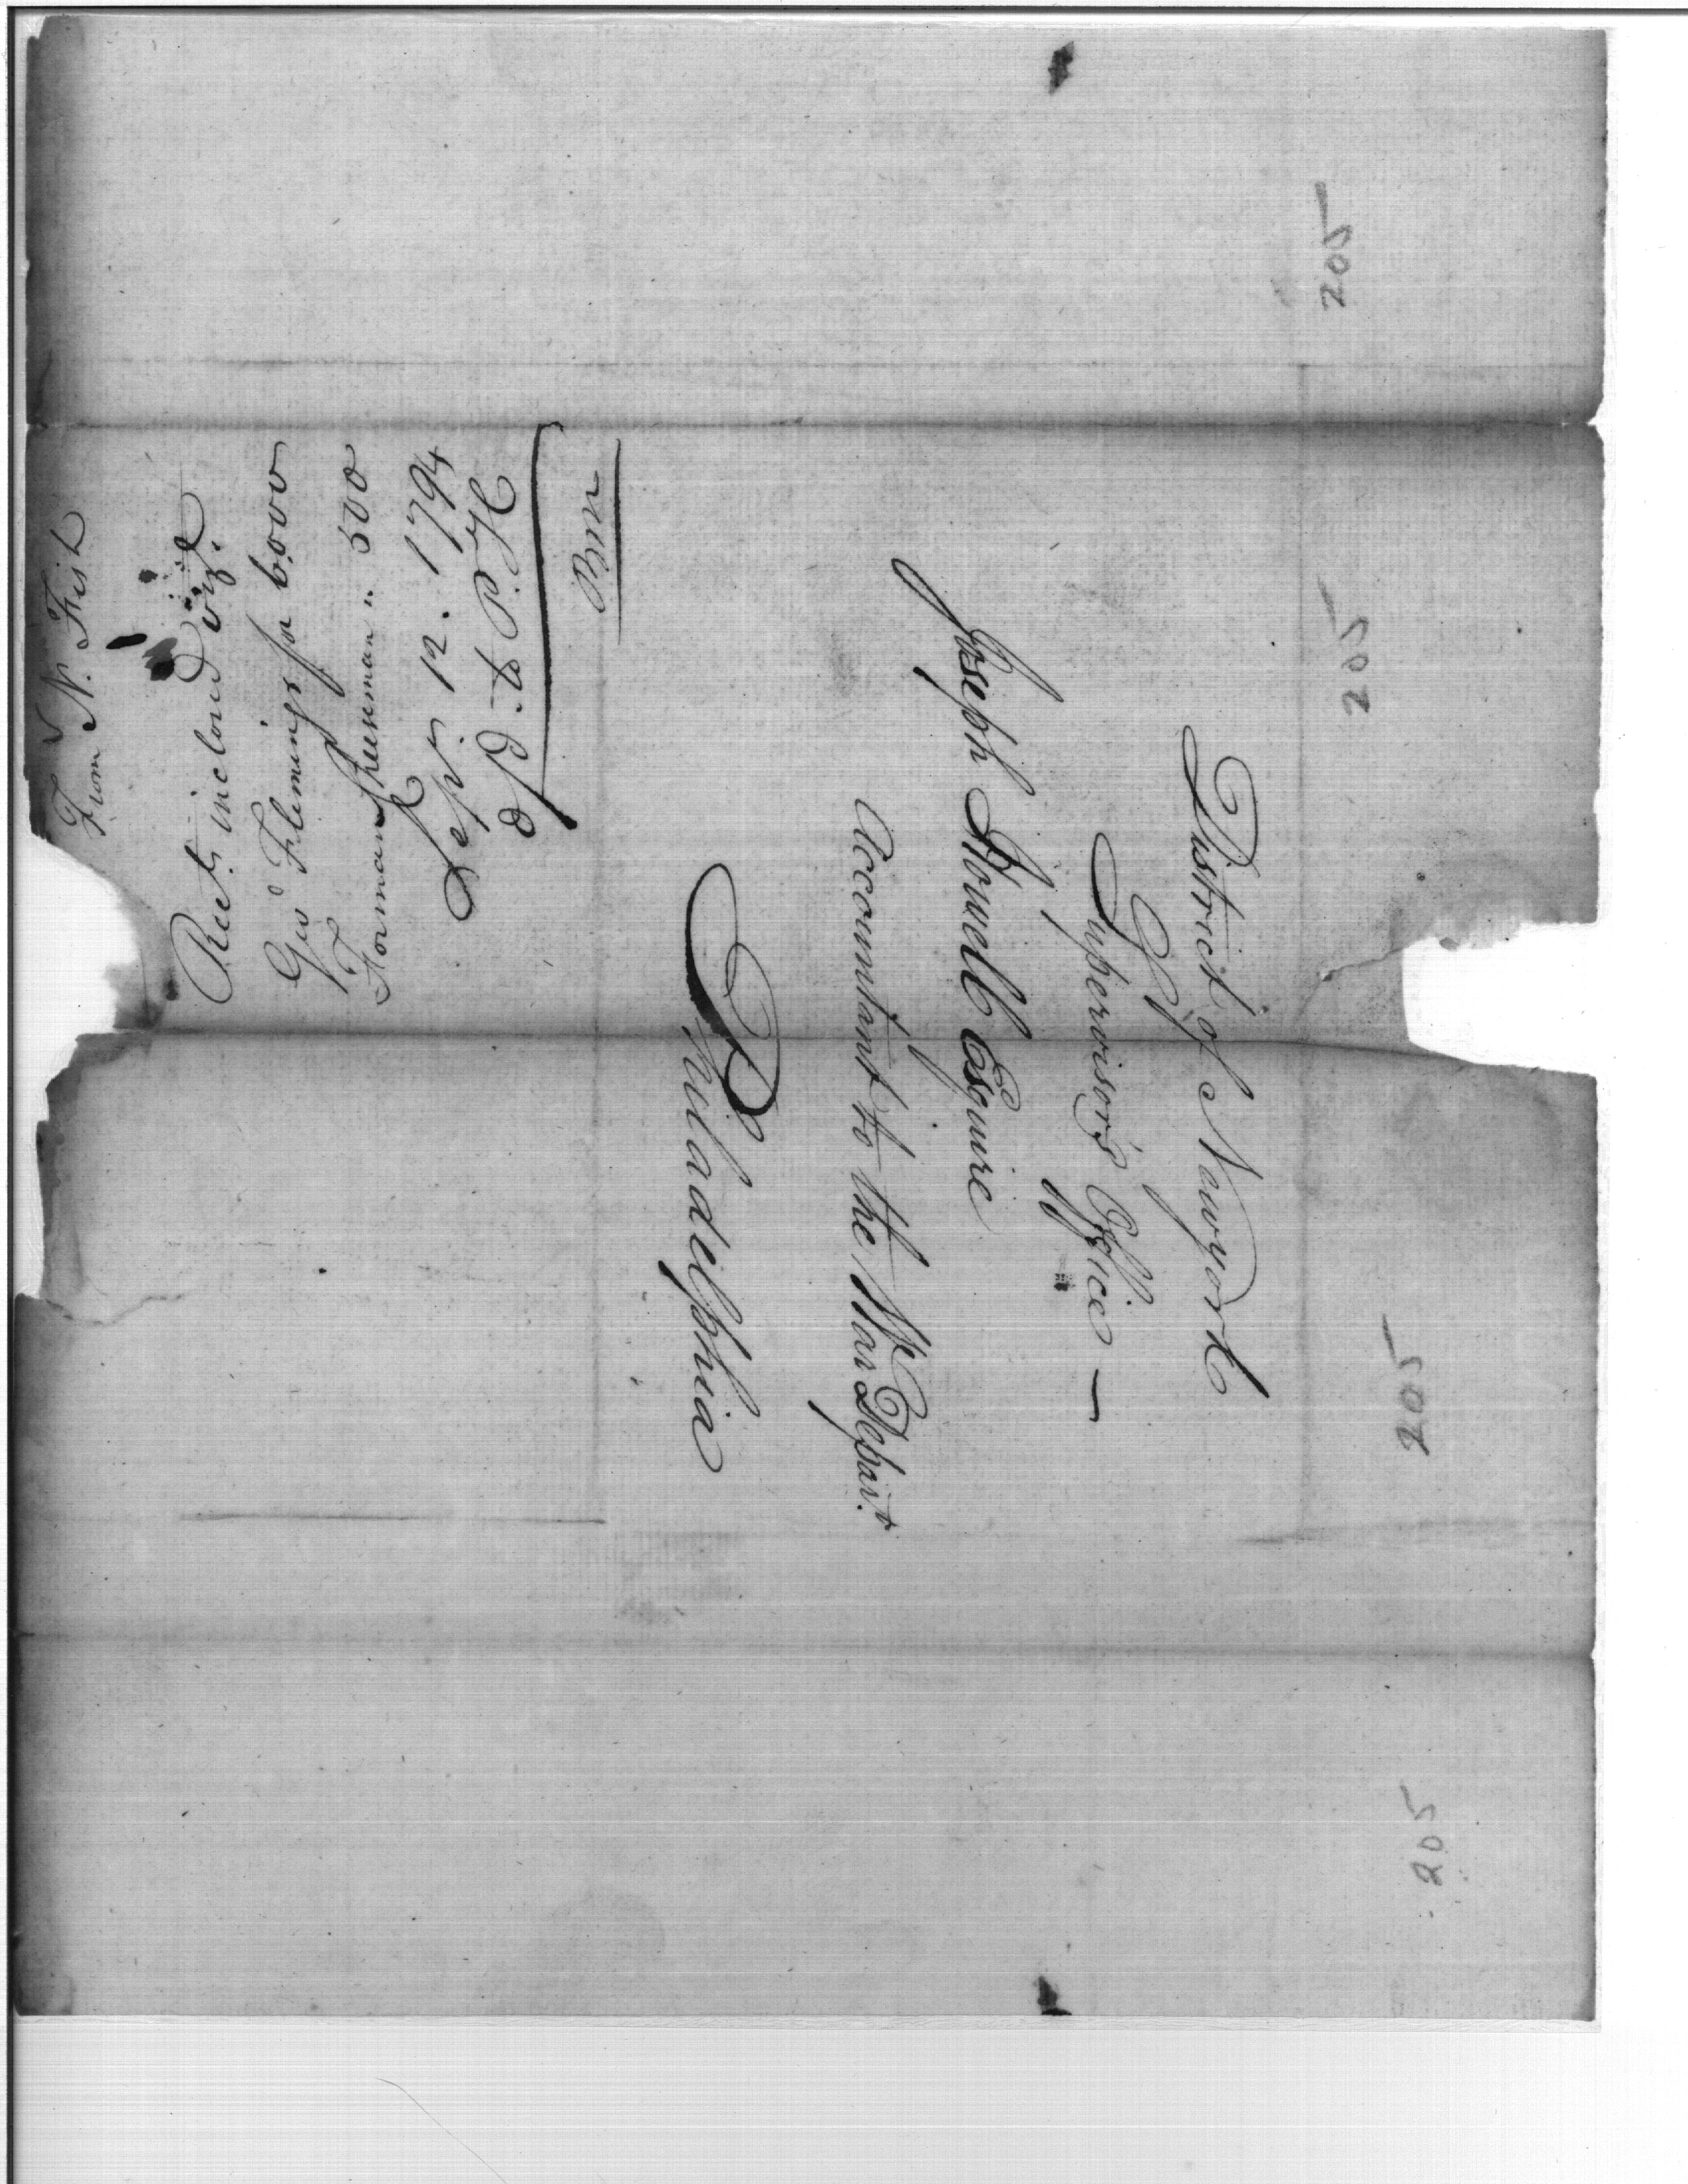 District of Newyork
Supervisor's Office —
Joseph Howell Esquire
Accountant to the War Depart.t
Philadelphia
From N. Fish
Rects inclosed viz.
Geo Flemings for 6000
Forman Cheeseman " 500
Sept. 12. 1794
to P. H
205
205
205
205